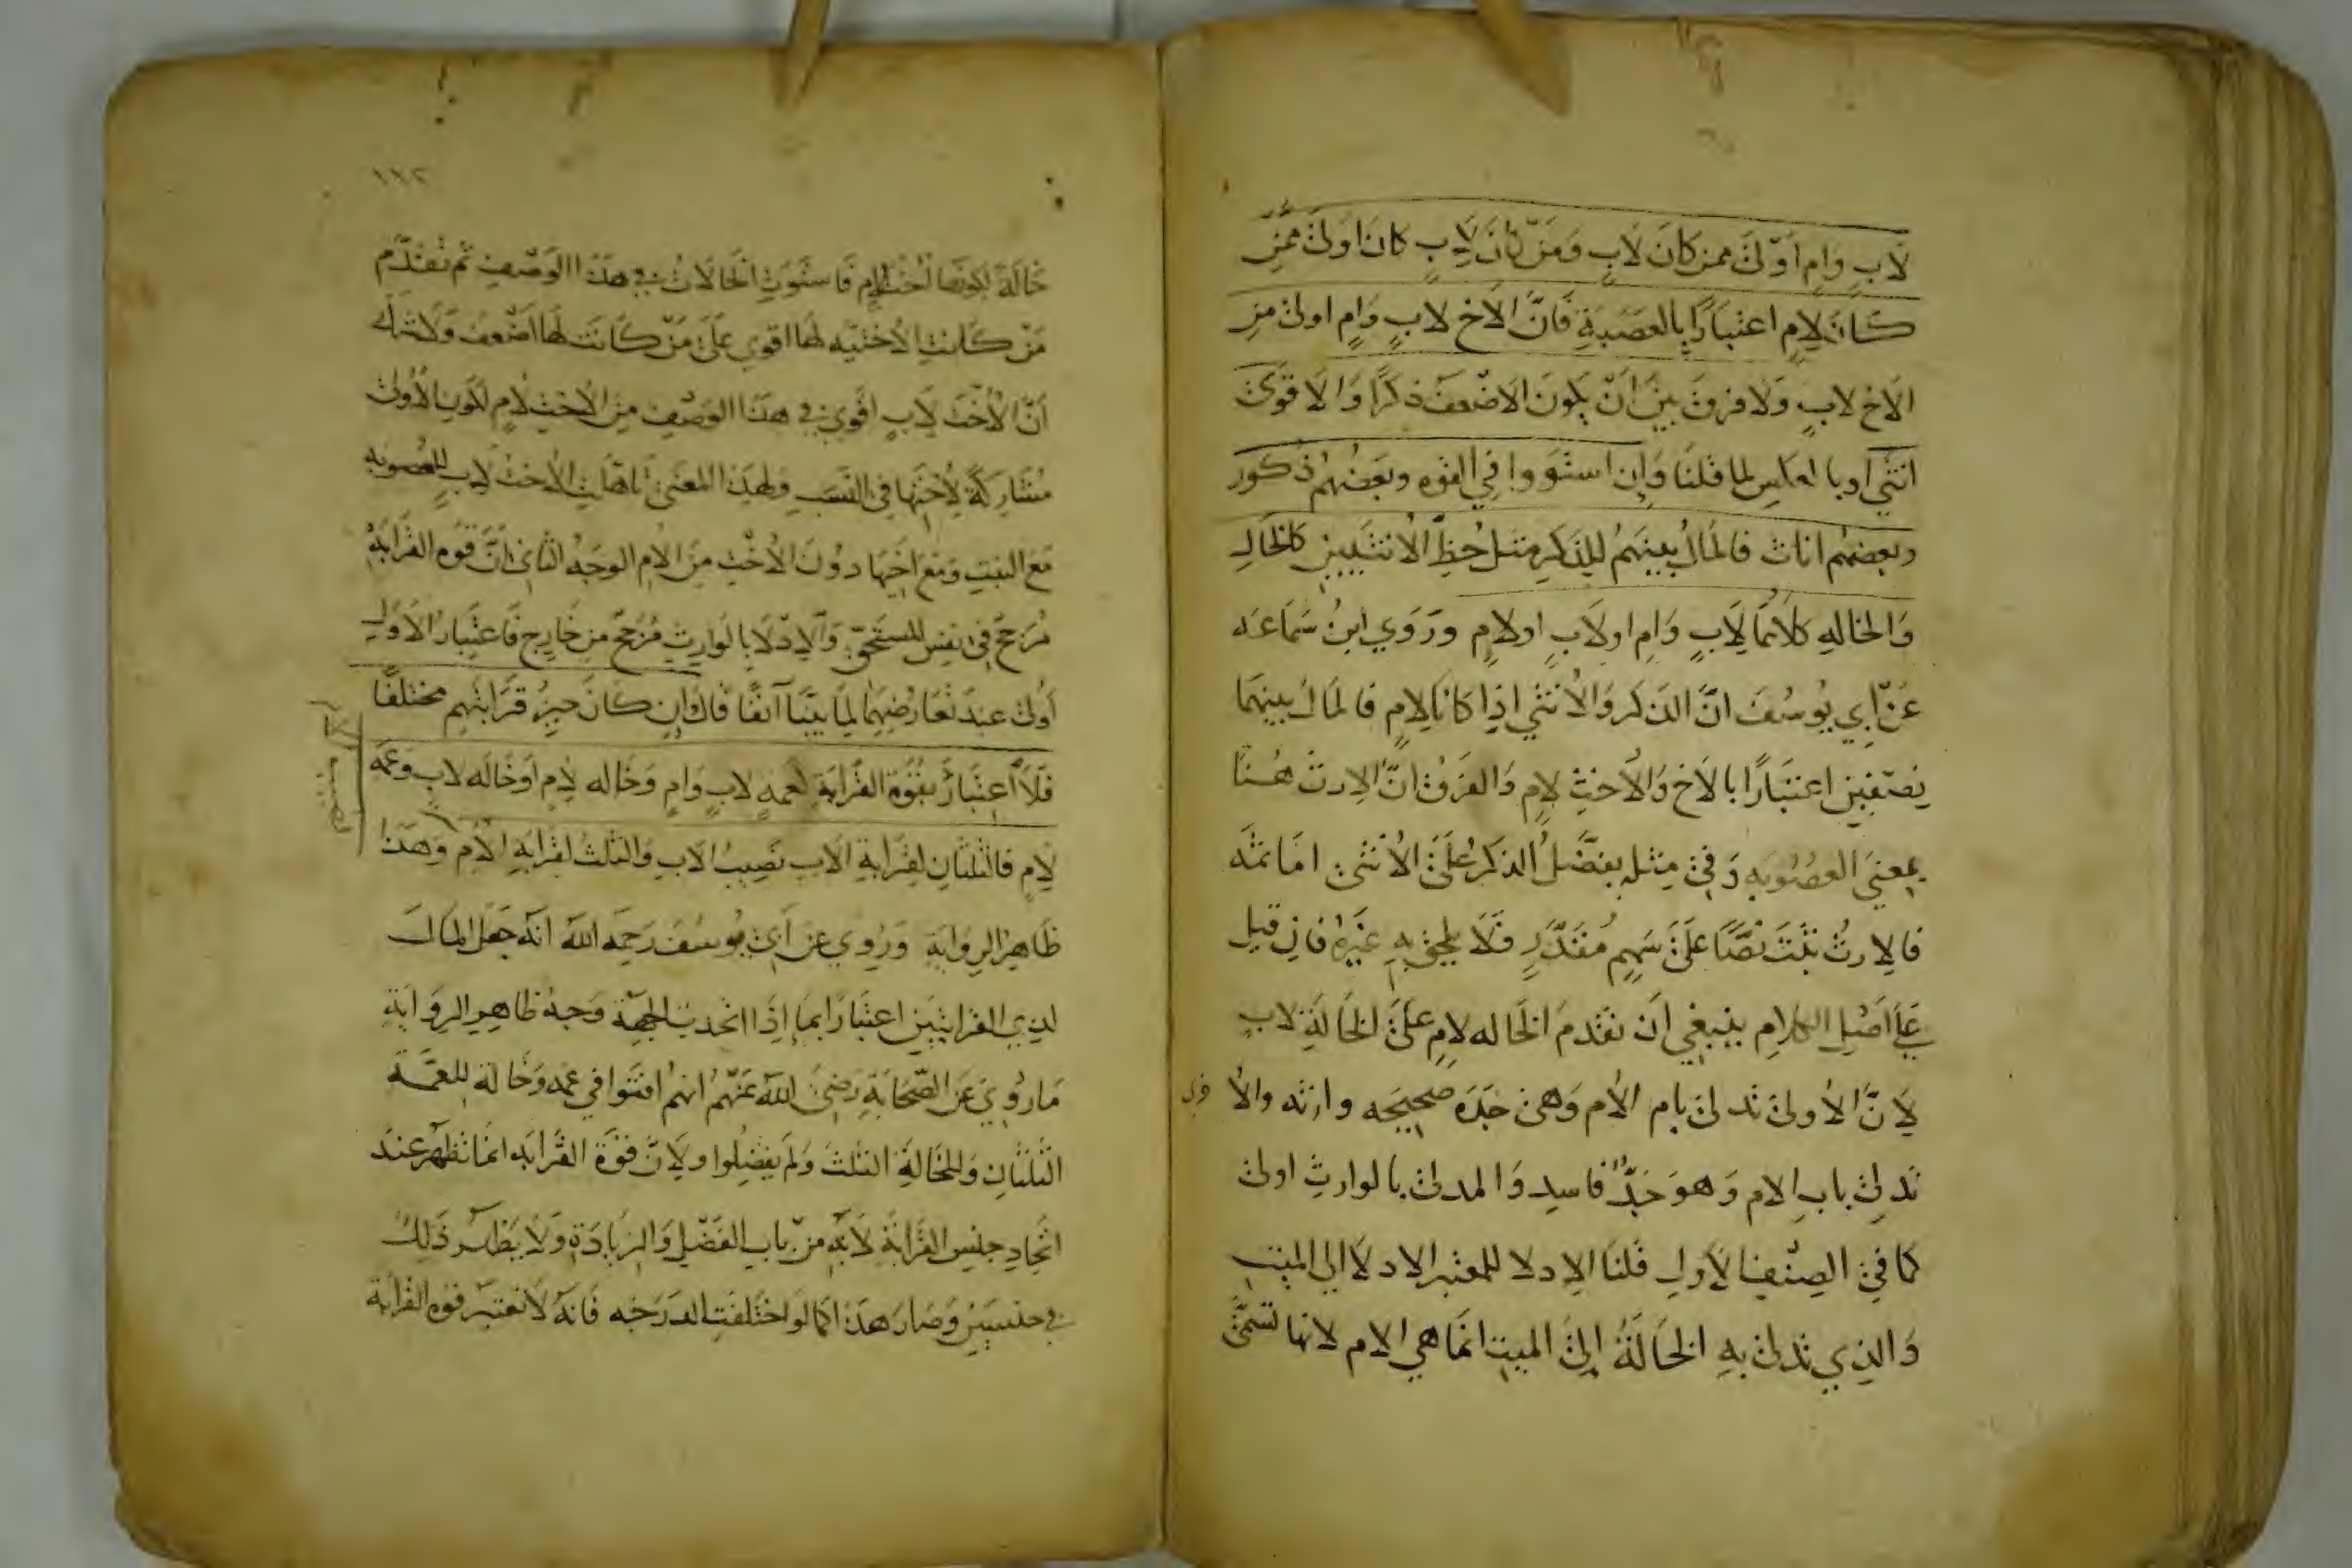 لاب وام اولى ممن كان لاب ومن كان لاب كان اولى ممن
كان لام اعتبارا بالعصبة فان الاخ لاب وام اولى من
الاخ لاب ولا فرق بين ان يكون الاضعف ذكرا والاقوى
انثى او بالعكس لما قلنا وان استووا في القوه وبعضهم ذكور
وبعضهم اناث فالمال بينهم للذكر مثل حظ الانثيين كالخال
والخاله كلاهما لاب وام او لاب او لام وروي ابن سماعه
عن ابي يوسف ان الذكر والانثى اذا كانا لام فالمال بينهما
نصفين اعتبارا بالاخ والاخت لام والفرق ان الارث هنا
بمعنى العصوبه وفي مثله يفضل الذكر على الانثى اما ثمه
فالارث ثبت نصا على سهم مقدر فلا يلحق به غيره فان قيل
على اصل الكلام ينبغي ان تقدم الخاله لام على الخالة لاب
لان الاولى تدلى بام الام وهي جدة صحيحه وارثه والا
خرى
تدلى باب الام وهو جد فاسد والمدلى بالوارث اولى
كما في الصنف الاول قلنا الادلا المعتبر الادلا الى الميت
والذي تدلى به الخالة الى الميت انما هي الام لانها تسمى
١١٢
خالة لكونها اخت الام فاستوت الخالات في هذا الوصف ثم تقدم
من كانت الاختيه لها اقوى على من كانت لها اضعف ولا شك
ان الاخت لاب اقوى في هذا الوصف من الاخت لام لكون الاولى
مشاركة لاختها في النسب ولهذا المعنى تاهلت الاخت لاب للعصوبه
مع البنت ومع اخيها دون الاخت من الام الوجه الثاني ان قوه القرابة
مرجح في نفس المستحق والادلا بالوارث مرجح من خارج فاعتبار الاول
اولى عند تعارضهما لما بينا آنفا قال وان كان حيز قرابتهم مختلفا
فلا اعتبار بقوة القرابة كعمه لاب وام وخاله لام او خاله لاب وعمه
لام فالثلثان لقرابة الاب نصيب الاب والثلث لقرابة الام وهذا
نصيب الام
ظاهر الرواية وروي عن ابي يوسف رحمه الله انه جعل المال
لذي القرابتين اعتبارا بما اذا اتحدت الجهة وجه ظاهر الرواية
ما روي عن الصحابة رضي الله عنهم انهم افتوا في عمه وخالة للعمة
الثلثان وللخالة الثلث ولم يفضلوا ولان قوة القرابه انما تظهر عند
اتحاد جنس القرابة لانه من باب الفضل والزيادة ولا يظهر ذلك
في جنسين وصار هذا كما لو اختلفت الدرجه فانه لا تعتبر قوه القرابة